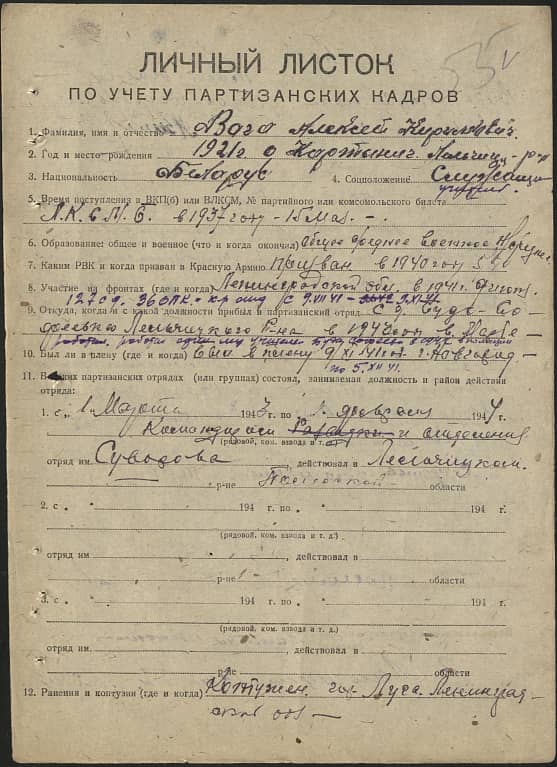 55
ЛИЧНЫЙ ЛИСТОК
ПО УЧЕТУ ПАРТИЗАНСКИХ КАДРОВ
1. Фамилия, имя и отчество Алексей
2. Год и место рождения 1921 г.
3. Национальность Беларус 4. Соцположение Служащи
учител
5. Время поступления в ВКП(б) или ВЛКСМ, № партийного или комсомольского билета
Л.К.С.М.Б. в 1937 году - 15 мая -
6. Образование: общее и военное (что и когда окончил) Общее среднее военное
7. Каким РВК и когда призван в Красную Армию призван в 1940 году
8. Участие на фронтах (где и когда) Ленинградской обл. в 1941
9. Откуда, когда и с какой должности прибыл в партизанский отряд С д. Буда-Со
фиевка Лельчицкого р-на в марте
10. Был ли в плену (где и когда) был в плену г. Новгород
по 5.XII 41.
11. В каких партизанских отрядах (или группах) состоял, занимаемая должность и район действия
отряда:
1. с 1 Марта 1943 г. по 1. февраля 1944 г.
Командиром и отделения
(рядовой, ком. взвода и т. д.)
отряд им. Суворова , действовал в Лельчицком
р-не Полесской области
2. с " 194 г. по " 194 г.
(рядовой, ком. взвода и т. д.)
отряд им. , действовал в
р-не области
3. с " 194 г. по " 194 г.
(рядовой, ком. взвода и т. д.)
отряд им. , действовал в
р-не области
12. Ранения и контузии (где и когда) Контужен гор. Луга Ленинград-
ской обл —